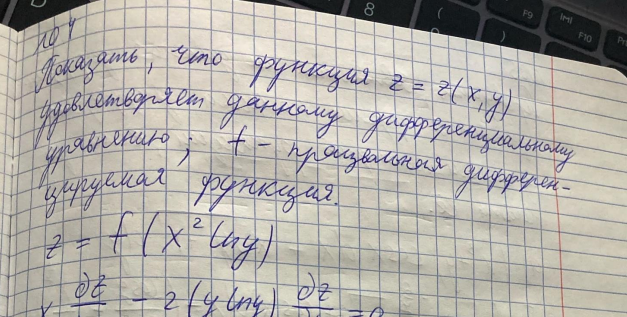 №4
Показать, что функция z = z(x,y)
удовлетворяет данному дифференциальному
уравнению; f - произвольная дифферен-
цируемая функция.
z = f(x² lny)
x ∂z — - 2(y lny) ∂z — = 0
8
(
)
F9
F10